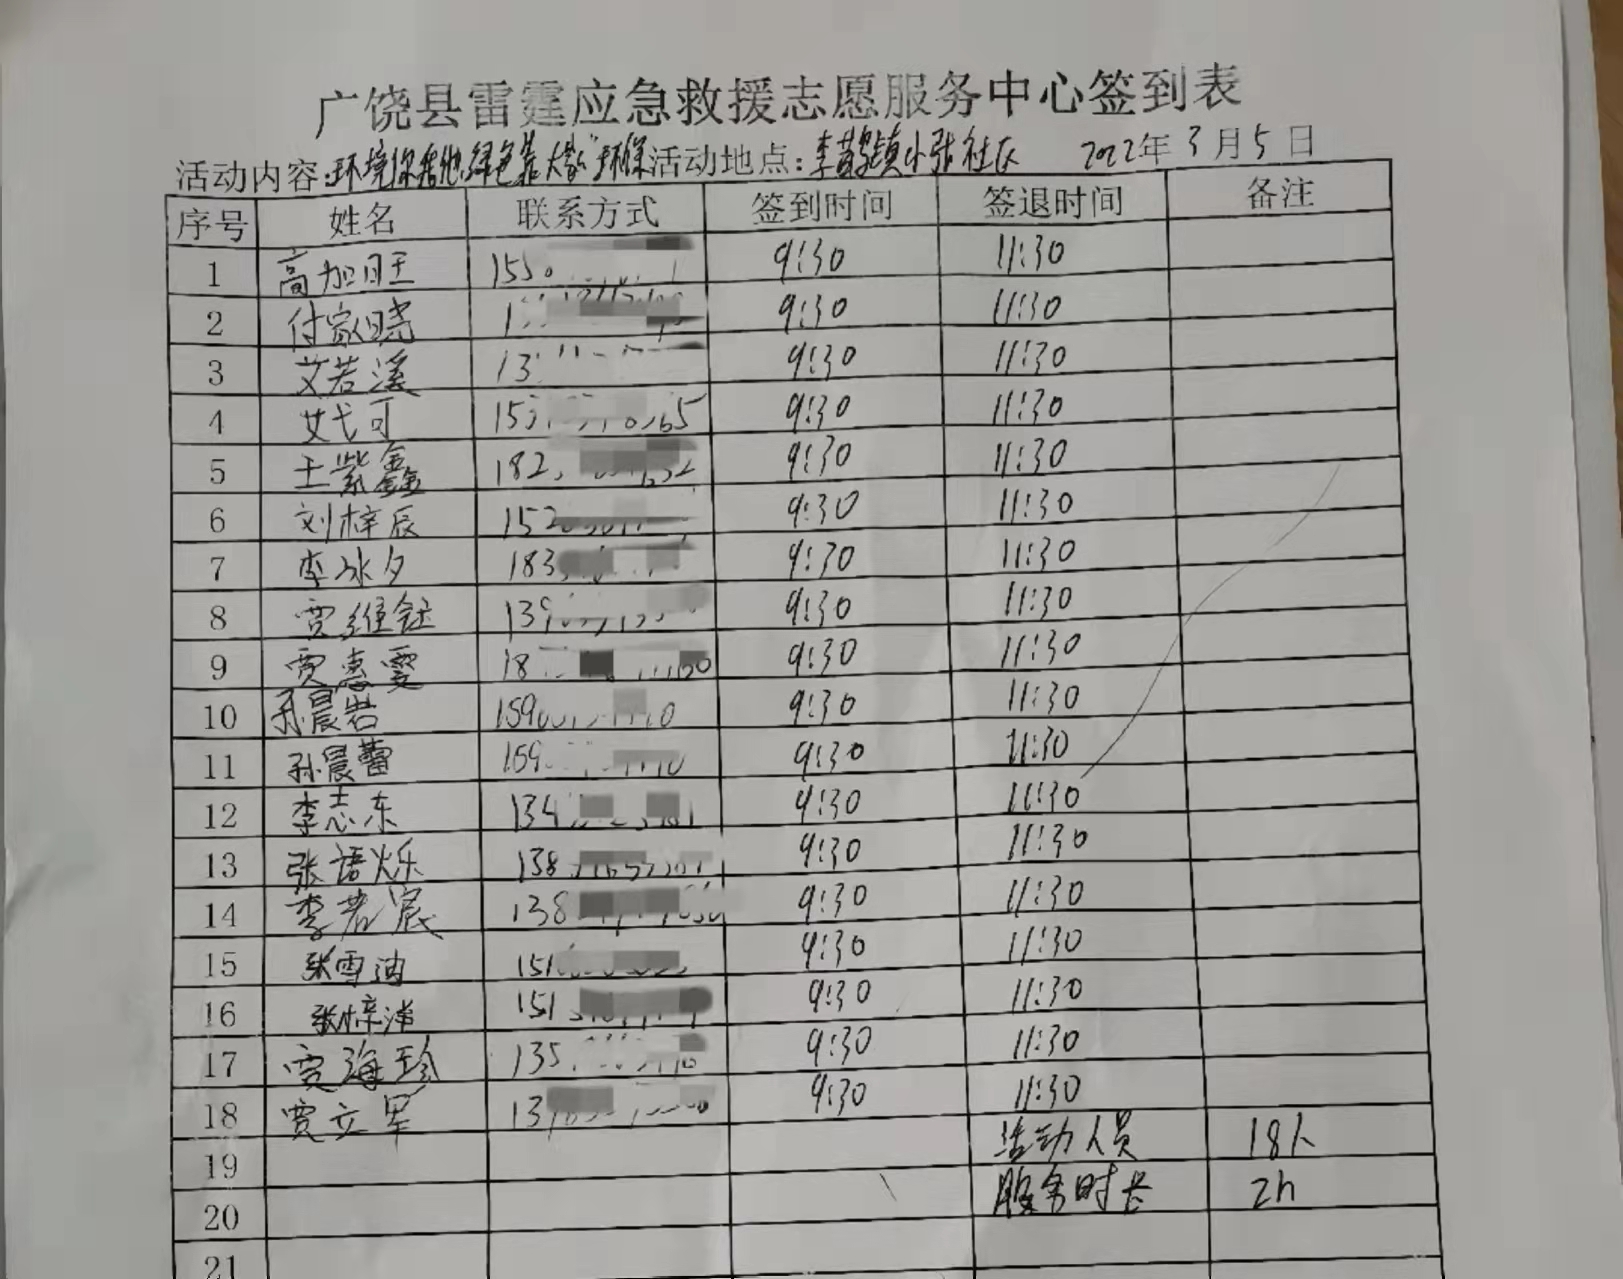 广饶县雷霆应急救援志愿服务中心签到表
活动内容:环境你我他,绿色靠大家"环保 活动地点:李鹊镇小张社区 2022年3月5日
序号 姓名 联系方式 签到时间 签退时间 备注
1 高加旺 155 9:30 11:30
2 付家晓 1 9:30 11:30
3 艾若溪 13 9:30 11:30
4 艾弋可 153 65 9:30 11:30
5 王紫鑫 182 9:30 11:30
6 刘梓辰 152 9:30 11:30
7 李冰夕 183 9:30 11:30
8 贾维钰 139 9:30 11:30
9 贾惠雯 18 9:30 11:30
10 孙晨岩 159 9:30 11:30
11 孙晨蕾 159 9:30 11:30
12 李志东 134 9:30 11:30
13 张语烁 138 9:30 11:30
14 李若宸 138 9:30 11:30
15 张雪迪 151 9:30 11:30
16 张梓洋 151 9:30 11:30
17 贾海珍 135 9:30 11:30
18 贾立军 13 9:30 11:30
19 活动人员 18人
20 服务时长 2h
21